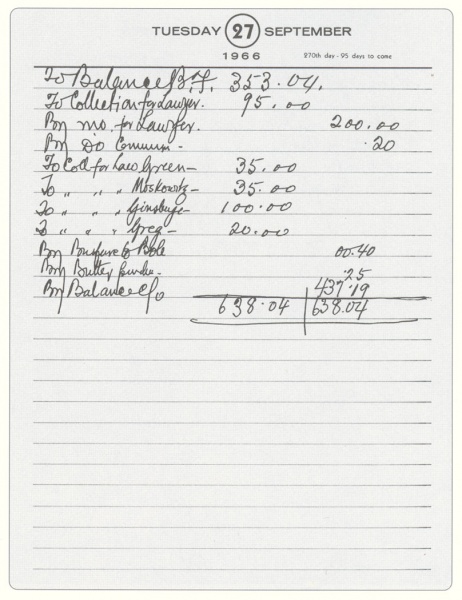 TUESDAY 27 SEPTEMBER
1966 270th day - 95 days to come
To Balance B.F. 353.04.
To Collection for Lawyer. 95.00
By mo. for Lawyer. 200.00
By Do Commum - .20
To Coll for Law Green - 35.00
To " " " Moskowitz - 35.00
To " " " Ginsburg - 100.00
To " " " Greg - 20.00
By to 00.40
By Butter .25
By Balance c/o 437.19
638.04 638.04